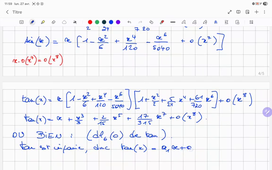 Titus
sin(x) = x [1 - x²/6 + x⁴/120 - x⁶/5040 + o(x⁷)]
x·o(x⁷) = o(x⁸)
tan(x) = x [1 - x²/6 + x⁴/120 - x⁶/5040] [1 + x²/2 + 5/24 x⁴ + 61/720 x⁶] + o(x⁸)
tan(x) = x + x³/3 + 2/15 x⁵ + 17/315 x⁷ + o(x⁸)
OU BIEN : (dl₈(0) de tan)
tan est impaire, donc tan(x) = a₁x + o